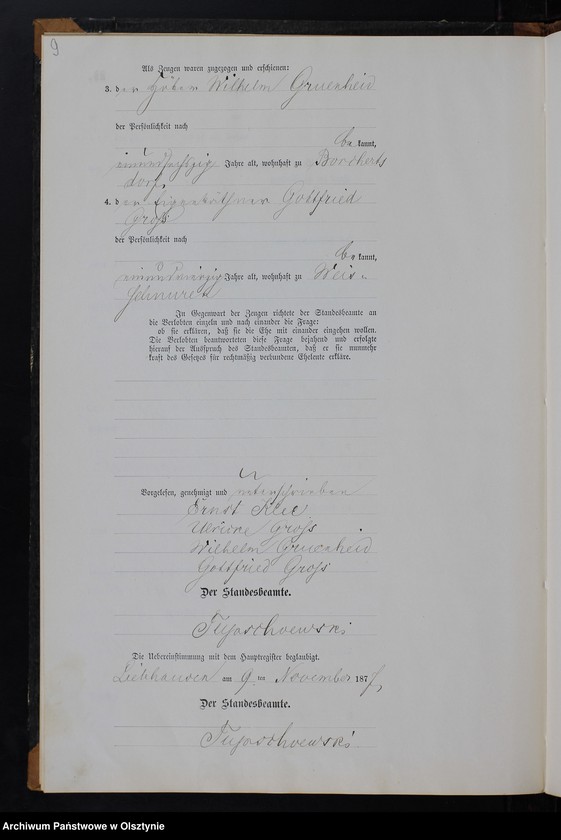 9
Als Zeugen waren zugezogen und erschienen:
3. der Wilhelm Gruenheid
der Persönlichkeit nach
be kannt,
einundsechszig Jahre alt, wohnhaft zu Borcherts
dorf,
4. den Eigenkäthner Gottfried
Groß
der Persönlichkeit nach
be kannt,
einundvierzig Jahre alt, wohnhaft zu
In Gegenwart der Zeugen richtete der Standesbeamte an
die Verlobten einzeln und nach einander die Frage:
ob sie erklären, daß sie die Ehe mit einander eingehen wollen.
Die Verlobten beantworteten diese Frage bejahend und erfolgte
hierauf der Ausspruch des Standesbeamten, daß er sie nunmehr
kraft des Gesetzes für rechtmäßig verbundene Eheleute erkläre.
Vorgelesen, genehmigt und unterschrieben
Ernst Klee
Groß
Wilhelm Gruenheid
Gottfried Groß
Der Standesbeamte.
Die Uebereinstimmung mit dem Hauptregister beglaubigt.
am 9 ten November 187
Der Standesbeamte.
Archiwum Państwowe w Olsztynie